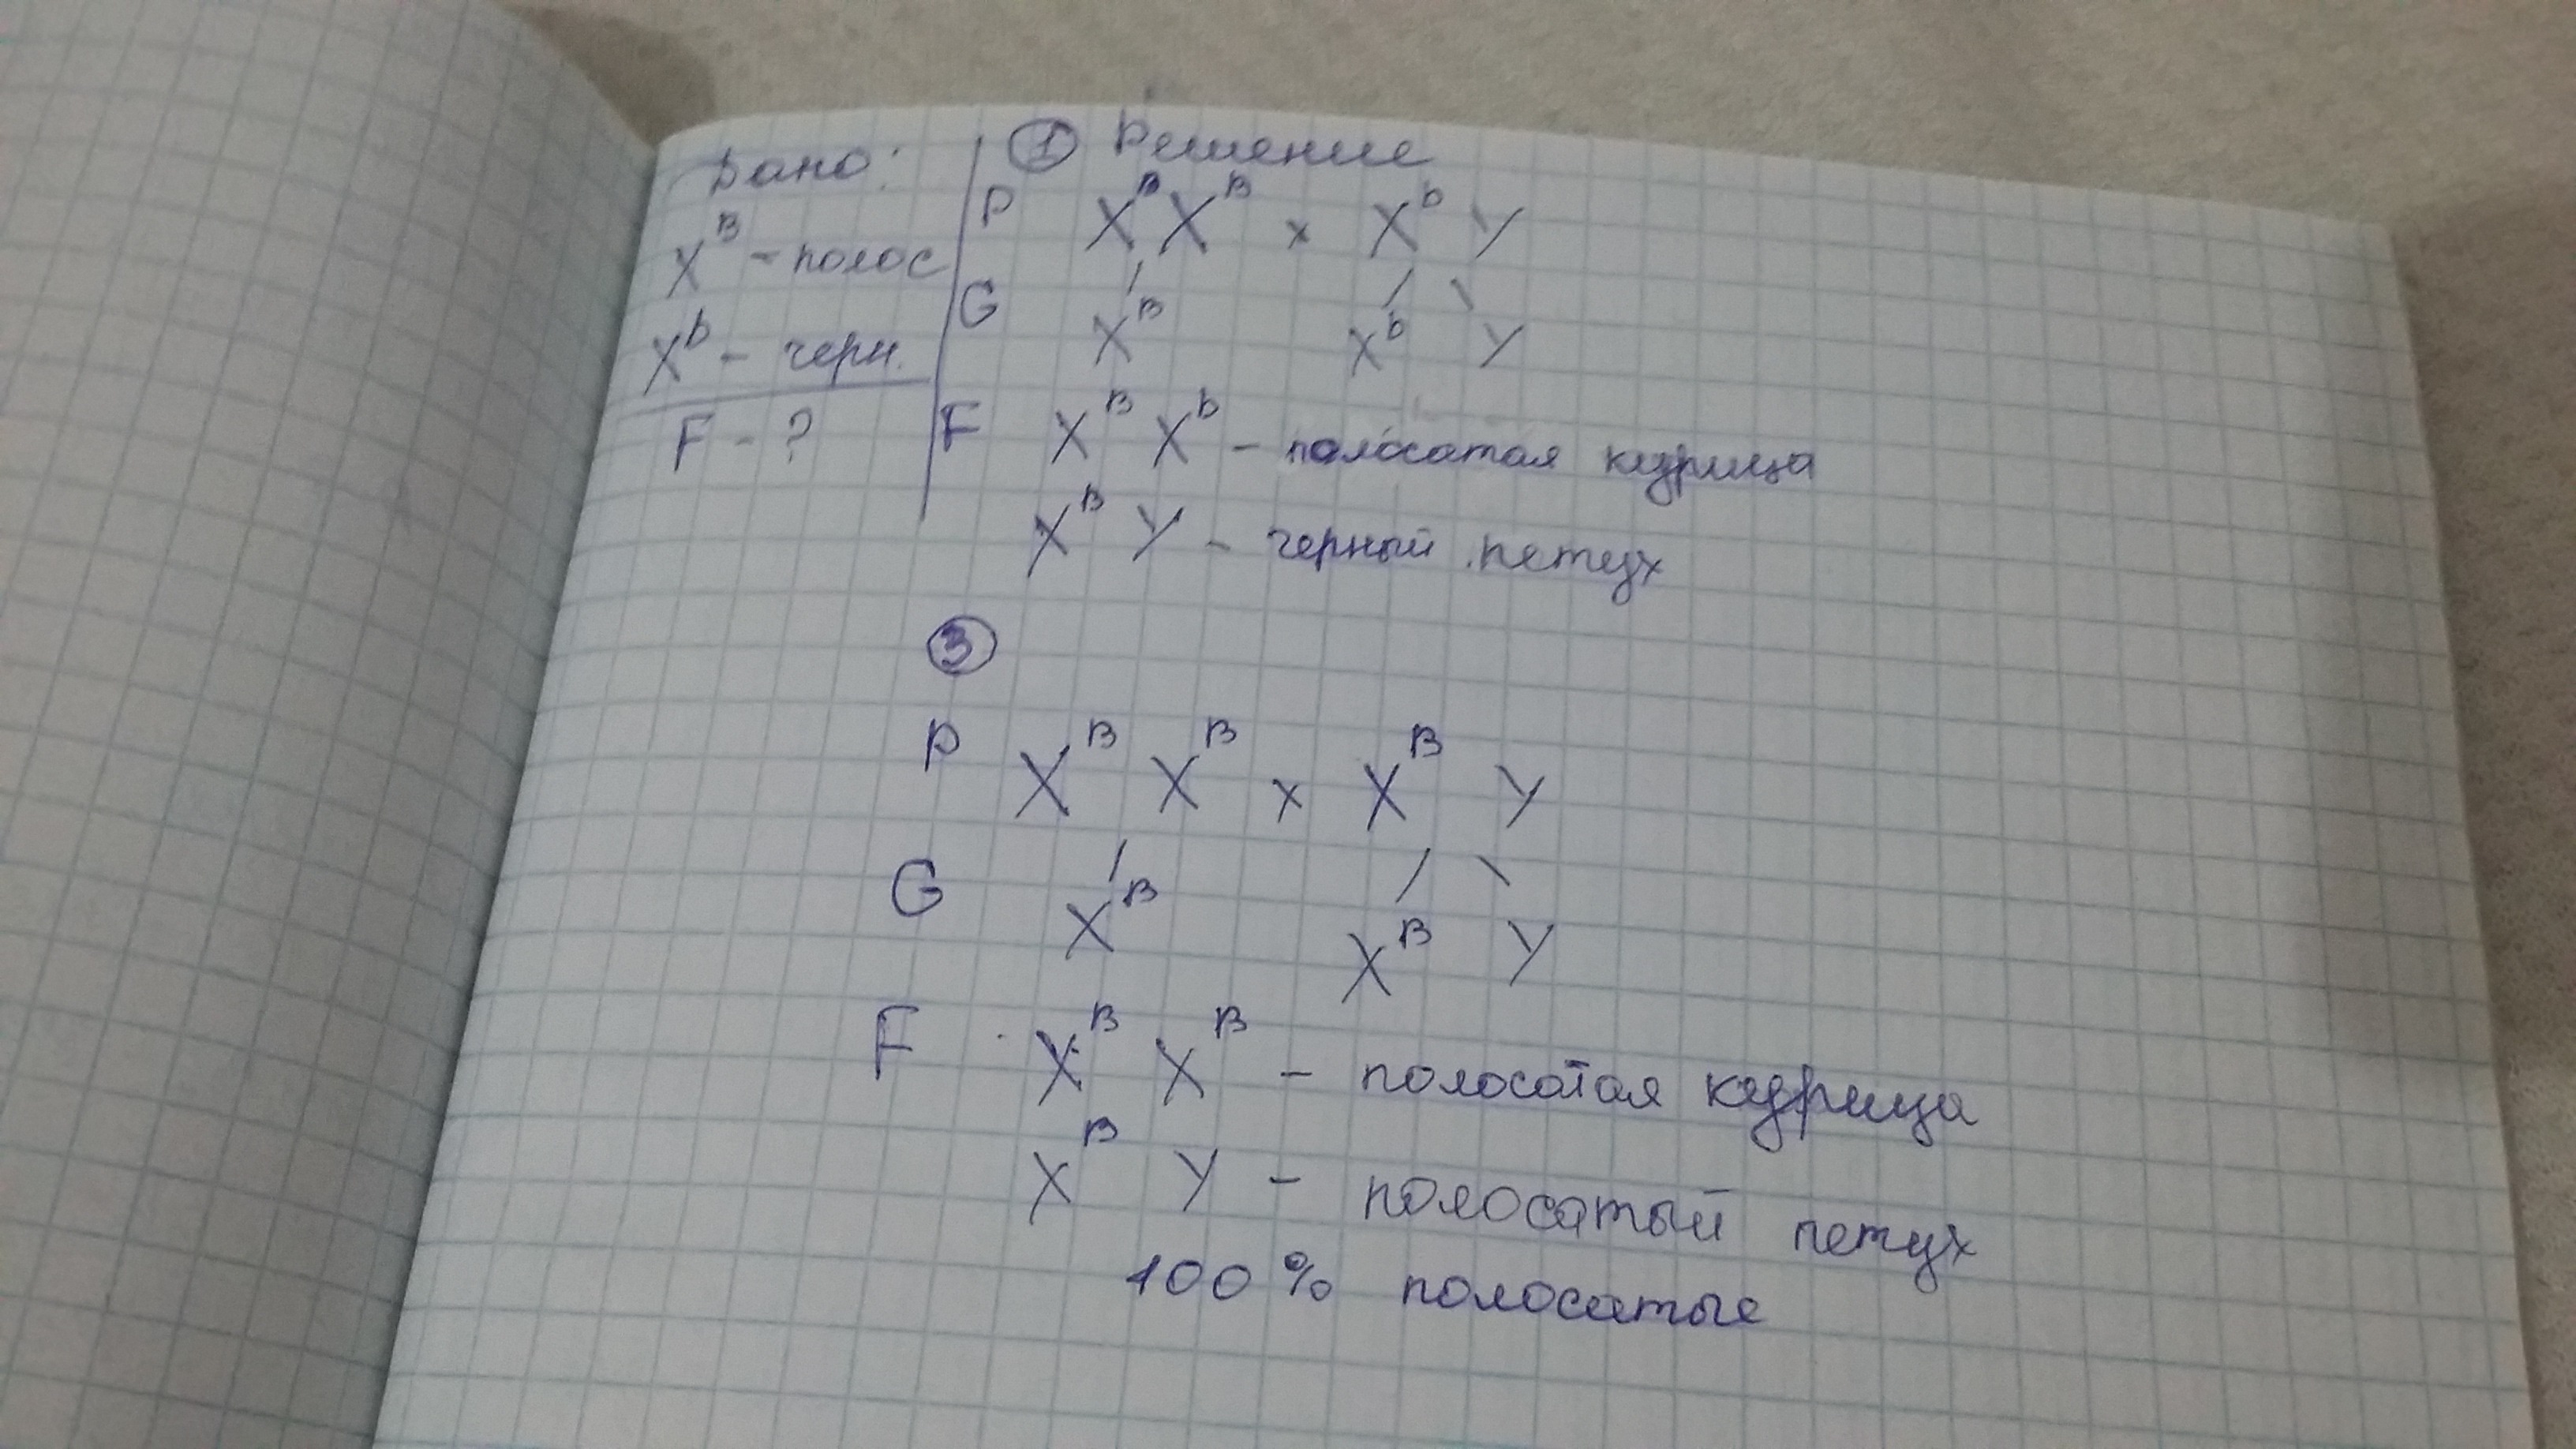 Дано:
X^B - полос
X^b - черн.
F - ?
① Решение
P X^B X^B × X^b Y
G X^B X^b Y
F X^B X^b - полосатая курица
X^B Y - черный петух
③
P X^B X^B × X^B Y
G X^B X^B Y
F X^B X^B - полосатая курица
X^B Y - полосатый петух
100 % полосатые